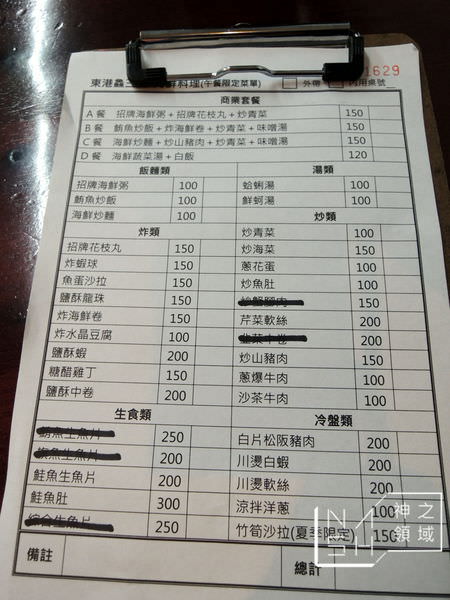 東港 料理(午餐限定菜單) 外帶 內用桌號
1629
商業套餐
A餐 招牌海鮮粥+招牌花枝丸+炒青菜 150
B餐 鮪魚炒飯+炸海鮮卷+炒青菜+味噌湯 150
C餐 海鮮炒麵+炒山豬肉+炒青菜+味噌湯 150
D餐 海鮮蔬菜湯+白飯 120
飯麵類 湯類
招牌海鮮粥 100 蛤蜊湯 100
鮪魚炒飯 100 鮮蚵湯 100
海鮮炒麵 100 炒類
炸類 炒青菜 100
招牌花枝丸 150 炒海菜 150
炸蝦球 150 蔥花蛋 100
魚蛋沙拉 150 炒魚肚 100
鹽酥龍珠 150 150
炸海鮮卷 150 芹菜軟絲 200
炸水晶豆腐 100 韭菜中卷 200
鹽酥蝦 200 炒山豬肉 150
糖醋雞丁 150 蔥爆牛肉 100
鹽酥中卷 200 沙茶牛肉 100
生食類 冷盤類
生魚片 250 白片松阪豬肉 200
旗魚生魚片 200 川燙白蝦 200
鮭魚生魚片 200 川燙軟絲 200
鮭魚肚 300 涼拌洋蔥 100
綜合生魚片 250 竹筍沙拉(夏季限定) 150
備註 總計
神之領域